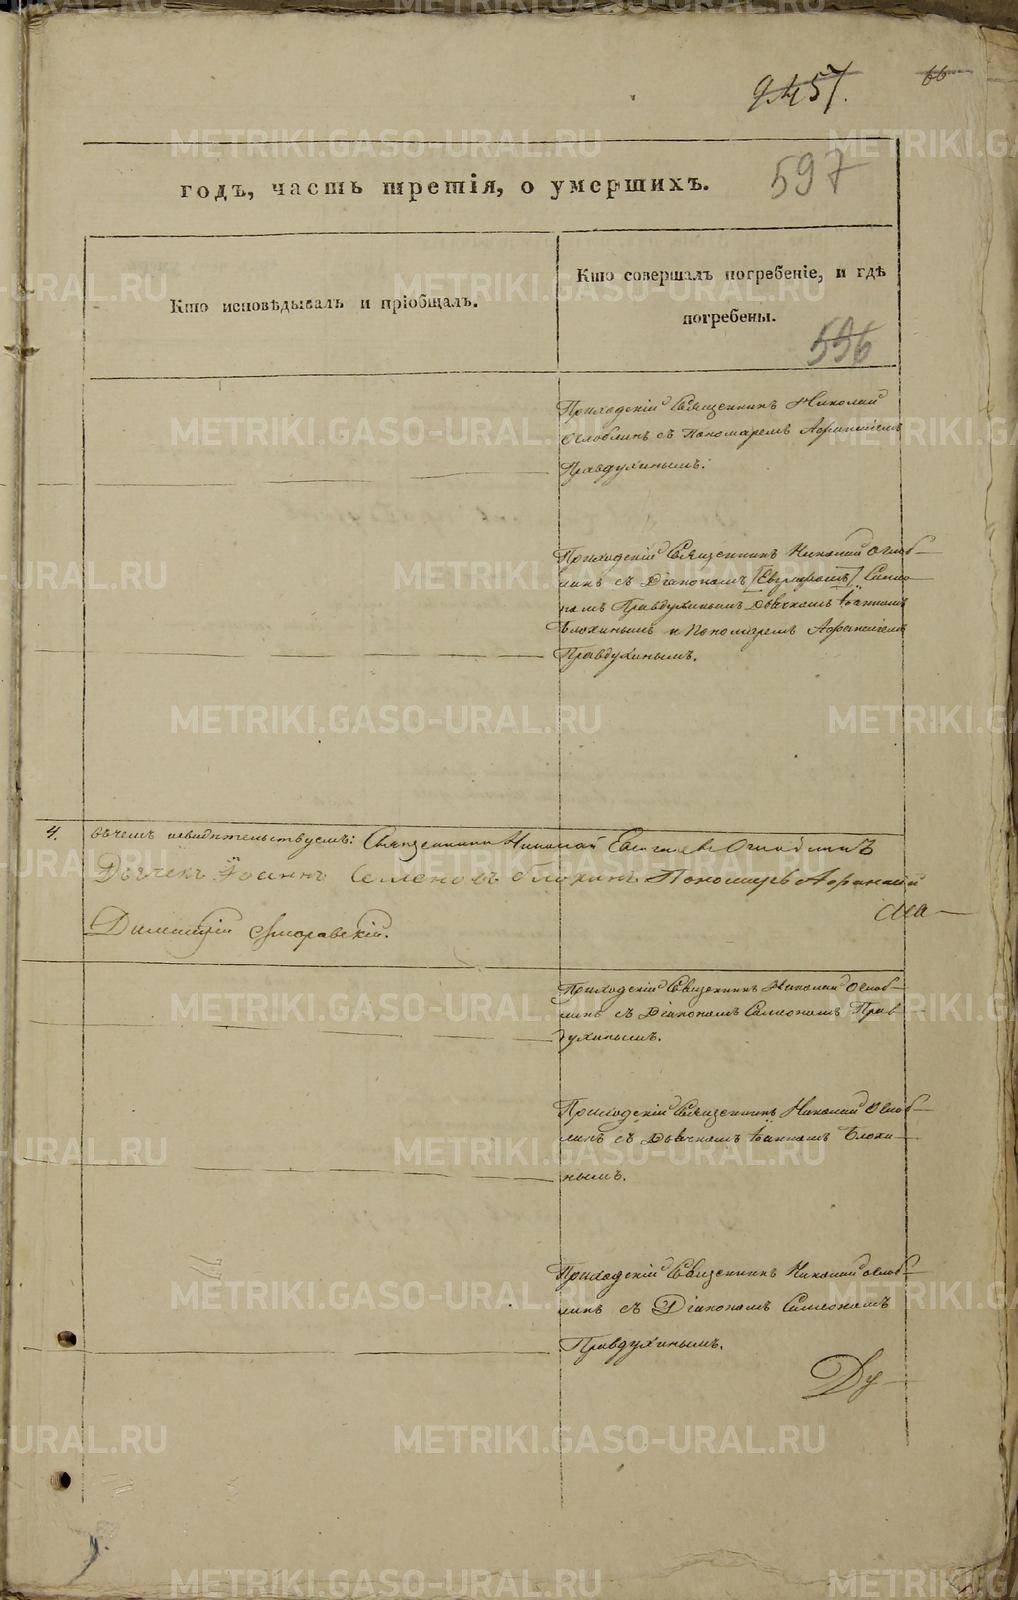 66
457.
годъ, часть третія, о умершихъ.
597
Кто исповѣдывалъ и пріобщалъ.
Кто совершалъ погребеніе, и гдѣ
погребены.
596
Приходскій Священникъ Николай
Оглоблинъ съ Пономаремъ Афанасіемъ
Правдухинымъ.
Приходскій Священникъ Николай Оглоб-
линъ съ Діакономъ Симео-
номъ Правдухинымъ Дьячкомъ Іоанномъ
Блохинымъ и Пономаремъ Афанасіемъ
Правдухинымъ.
4.
въ чемъ и свидѣтельствуемъ: Священникъ Николай Оглоблинъ
Дьячекъ Іоаннъ Семеновъ Блохинъ Пономарь Афанасій
Димитрій
Приходскій Священникъ Николай Оглоб-
линъ съ Діакономъ Симеономъ Прав-
духинымъ.
Приходскій Священникъ Николай Оглоб-
линъ съ Дьячкомъ Іоанномъ Блохи-
нымъ.
Приходскій Священникъ Николай Оглоб-
линъ съ Діакономъ Симеономъ
Правдухинымъ.
Ду-
METRIKI.GASO-URAL.RU